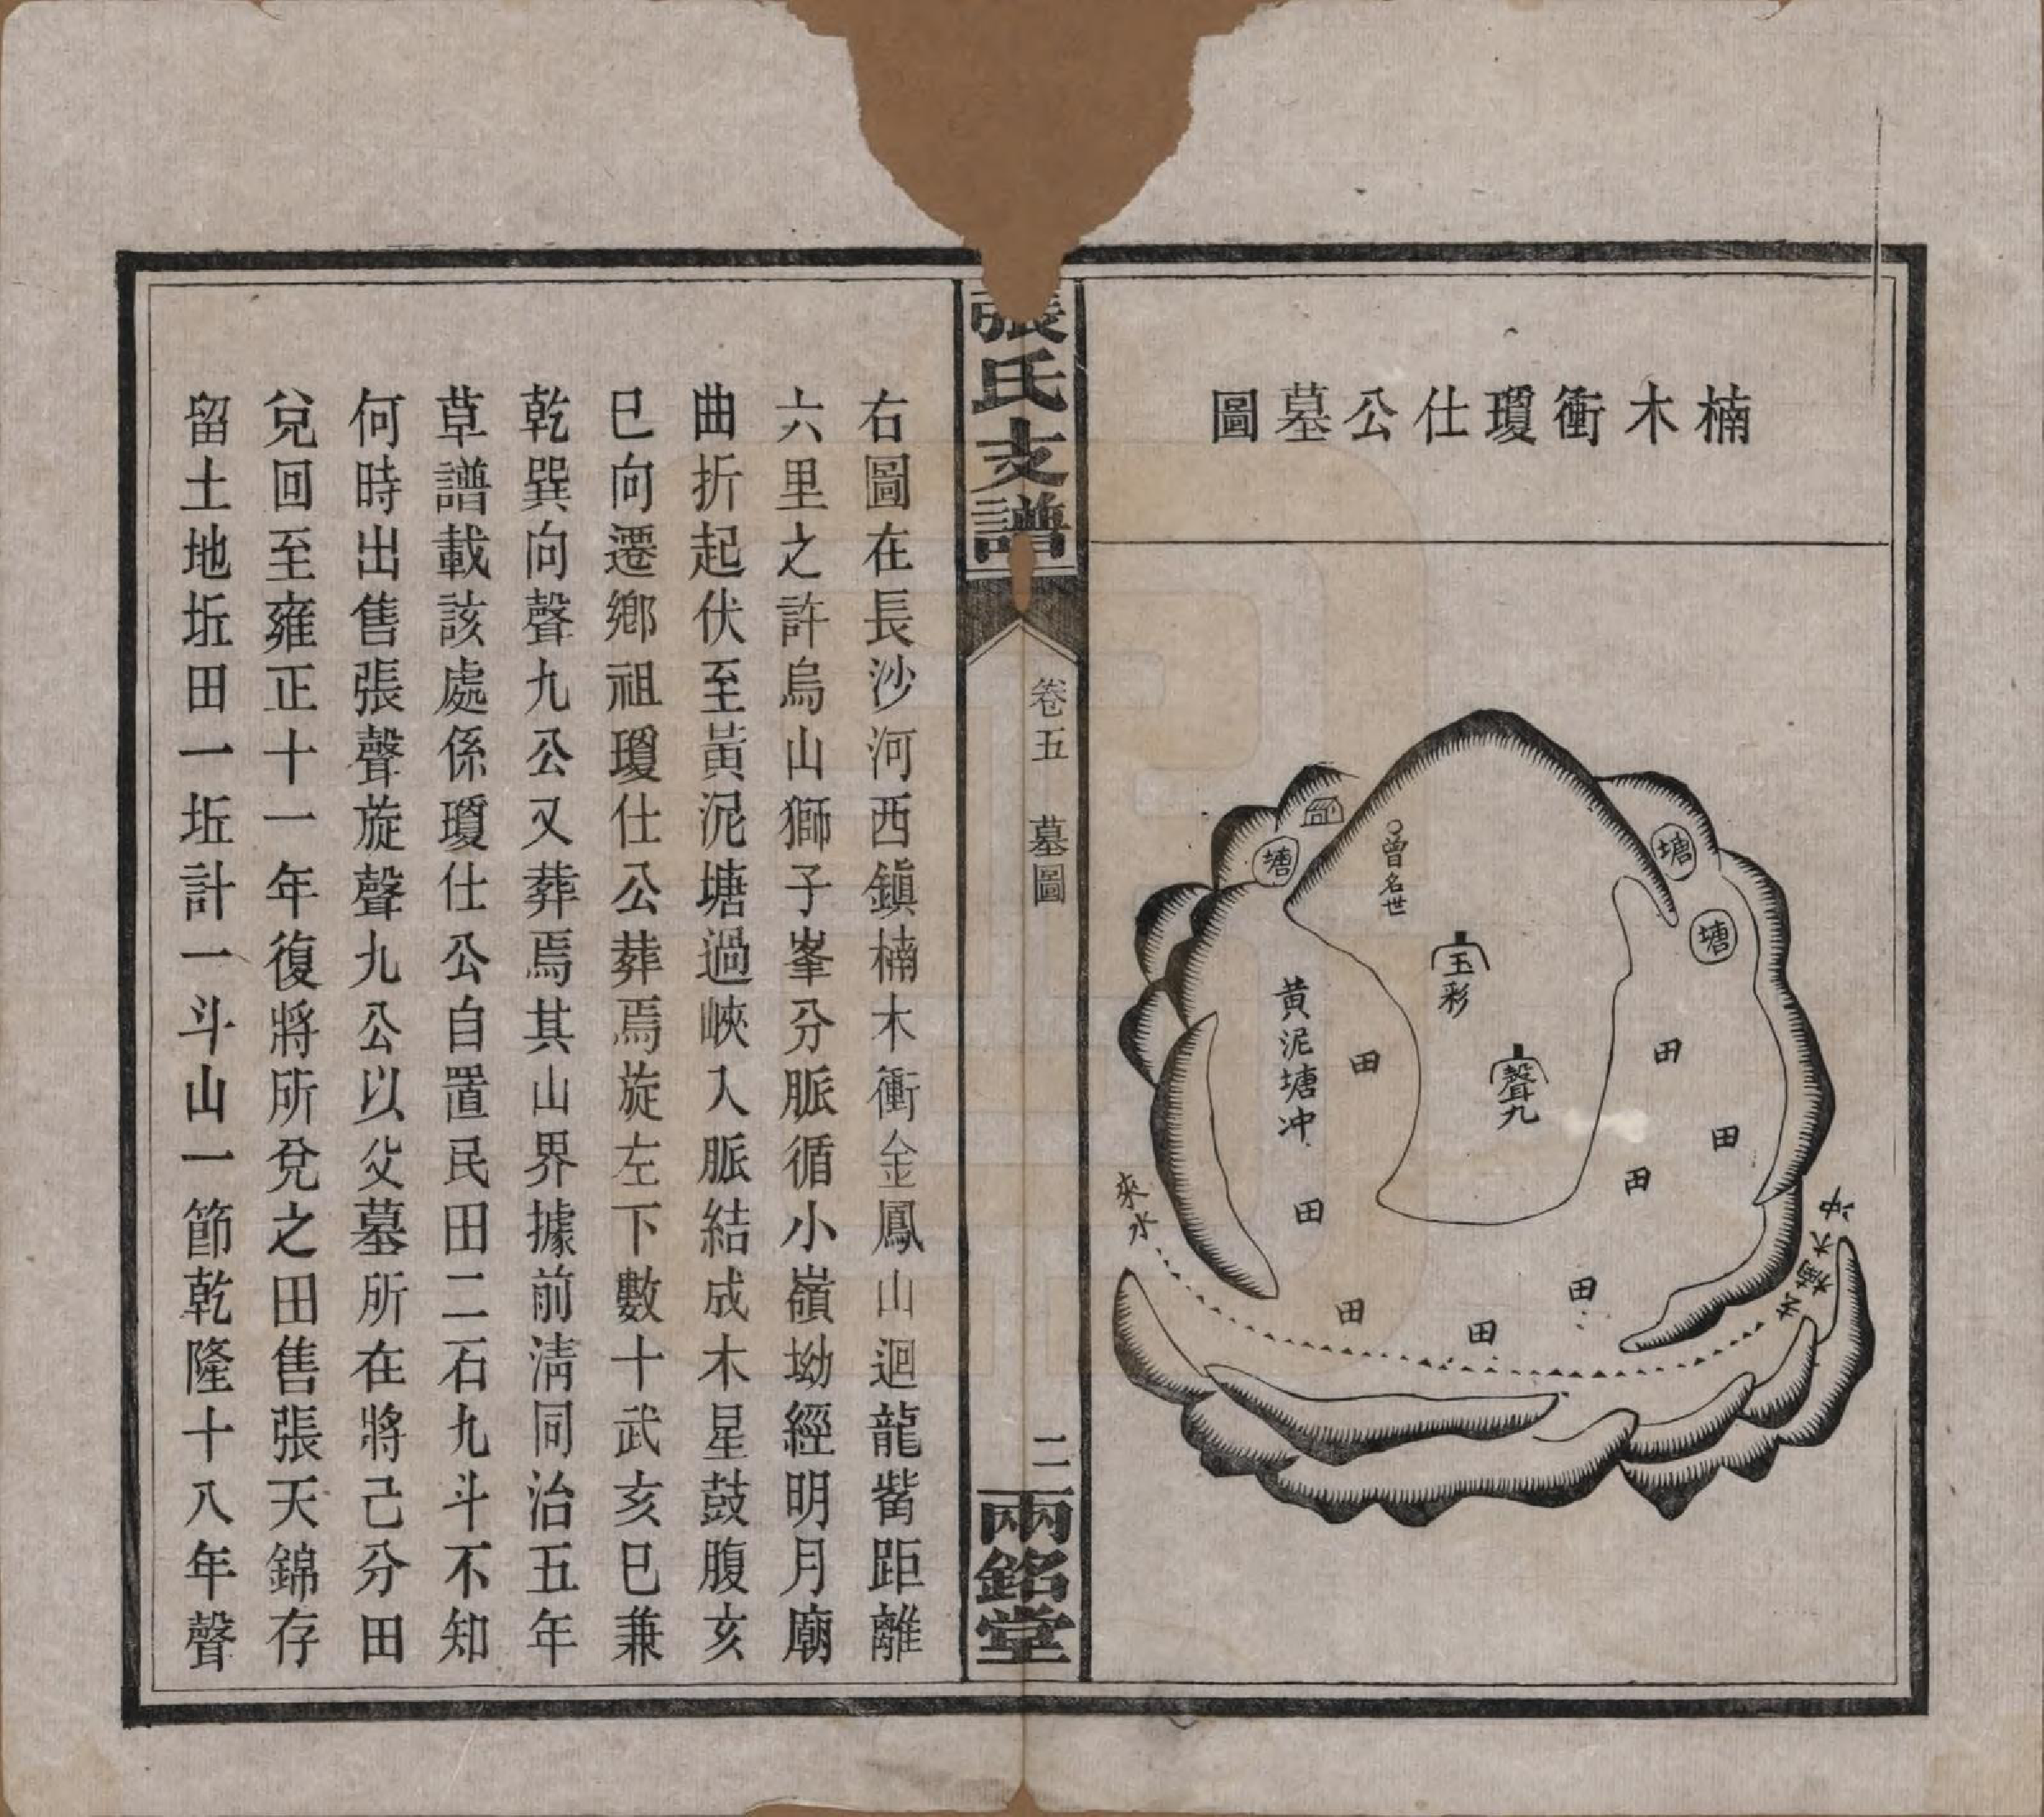 楠木衝瓊仕公墓圖
塘
塘
塘
曾名世
玉彩
聲九
黃泥塘冲
田
田
田
田
田
田
田
田
來水
去楠木冲
張氏支譜
卷五 墓圖
二
兩銘堂
右圖在長沙河西鎮楠木衝金鳳山迴龍嘴距離
六里之許烏山獅子峯分脈循小嶺坳經明月廟
曲折起伏至黃泥塘過峽入脈結成木星鼓腹亥
巳向遷鄉祖瓊仕公葬焉旋左下數十武亥巳兼
乾巽向聲九公又葬焉其山界據前淸同治五年
草譜載該處係瓊仕公自置民田二石九斗不知
何時出售張聲旋聲九公以父墓所在將己分田
兌回至雍正十一年復將所兌之田售張天錦存
留土地坵田一坵計一斗山一節乾隆十八年聲